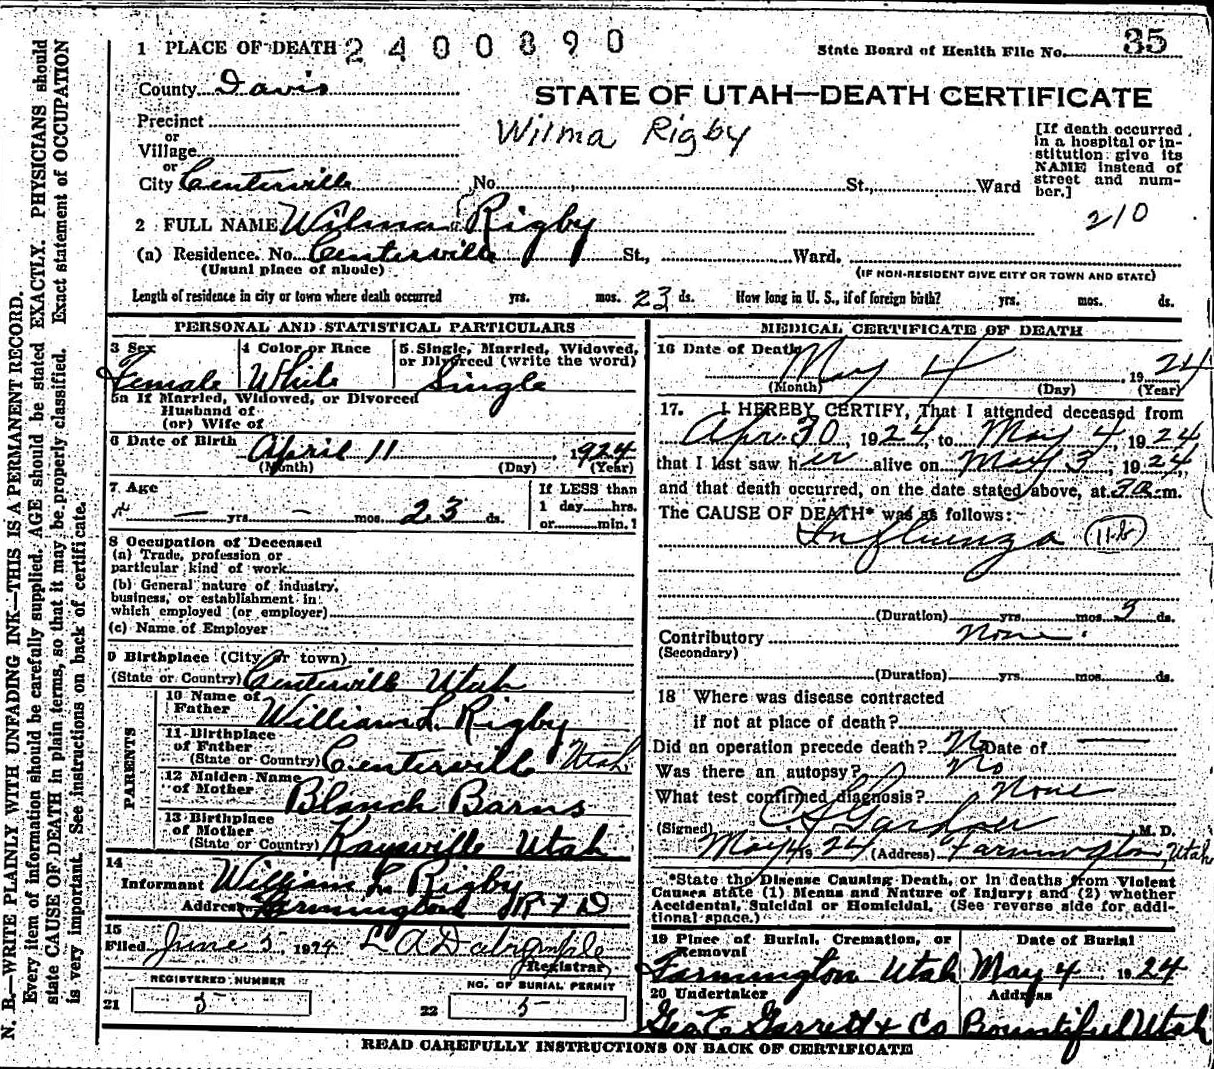 N. B.—WRITE PLAINLY WITH UNFADING INK—THIS IS A PERMANENT RECORD.
Every item of information should be carefully supplied. AGE should be stated EXACTLY. PHYSICIANS should
state CAUSE OF DEATH in plain terms, so that it may be properly classified. Exact statement of OCCUPATION
is very important. See instructions on back of certificate.
1 PLACE OF DEATH 2400890
State Board of Health File No. 35
County Davis
STATE OF UTAH—DEATH CERTIFICATE
Wilma Rigby
Precinct
or
Village
or
City Centerville No. St., Ward
[If death occurred
in a hospital or in-
stitution give its
NAME instead of
street and num-
ber.]
210
2 FULL NAME Wilma Rigby
(a) Residence. No. Centerville St., Ward.
(Usual place of abode) (IF NON-RESIDENT GIVE CITY OR TOWN AND STATE)
Length of residence in city or town where death occurred yrs. mos. 23 ds. How long in U. S., if of foreign birth? yrs. mos. ds.
PERSONAL AND STATISTICAL PARTICULARS
3 Sex 4 Color or Race 5. Single, Married, Widowed,
or Divorced (write the word)
Female White Single
5a If Married, Widowed, or Divorced
Husband of
(or) Wife of
6 Date of Birth April 11, 1924
(Month) (Day) (Year)
7 Age — yrs. — mos. 23 ds.
If LESS than
1 day hrs.
or min.?
8 Occupation of Deceased
(a) Trade, profession or
particular kind of work
(b) General nature of industry,
business, or establishment in
which employed (or employer)
(c) Name of Employer
9 Birthplace (City or town)
(State or Country) Centerville Utah
PARENTS
10 Name of
Father William L. Rigby
11 Birthplace
of Father
(State or Country) Centerville Utah
12 Maiden Name
of Mother Blanch Barns
13 Birthplace
of Mother
(State or Country) Kaysville Utah
14
Informant William L. Rigby
Address Farmington R F D
15
Filed June 5 1924 L A Dalrymple
Registrar
REGISTERED NUMBER NO. OF BURIAL PERMIT
21 5 22 5
MEDICAL CERTIFICATE OF DEATH
16 Date of Death May 4, 1924
(Month) (Day) (Year)
17. I HEREBY CERTIFY, That I attended deceased from
Apr. 30, 1924, to May 4, 1924
that I last saw her alive on May 3, 1924,
and that death occurred, on the date stated above, at 3 a. m.
The CAUSE OF DEATH* was as follows:
Influenza (11-b)
(Duration) yrs. mos. 5 ds.
Contributory None.
(Secondary)
(Duration) yrs. mos. ds.
18 Where was disease contracted
if not at place of death?
Did an operation precede death? No Date of —
Was there an autopsy? No
What test confirmed diagnosis? None
(Signed) Gardner M. D.
May 4 1924 (Address) Farmington, Utah
*State the Disease Causing Death, or in deaths from Violent
Causes state (1) Means and Nature of Injury; and (2) whether
Accidental, Suicidal or Homicidal. (See reverse side for addi-
tional space.)
19 Place of Burial, Cremation, or Removal Date of Burial
Farmington Utah May 4 1924
20 Undertaker Address
Geo E Garrett & Co Bountiful Utah
READ CAREFULLY INSTRUCTIONS ON BACK OF CERTIFICATE